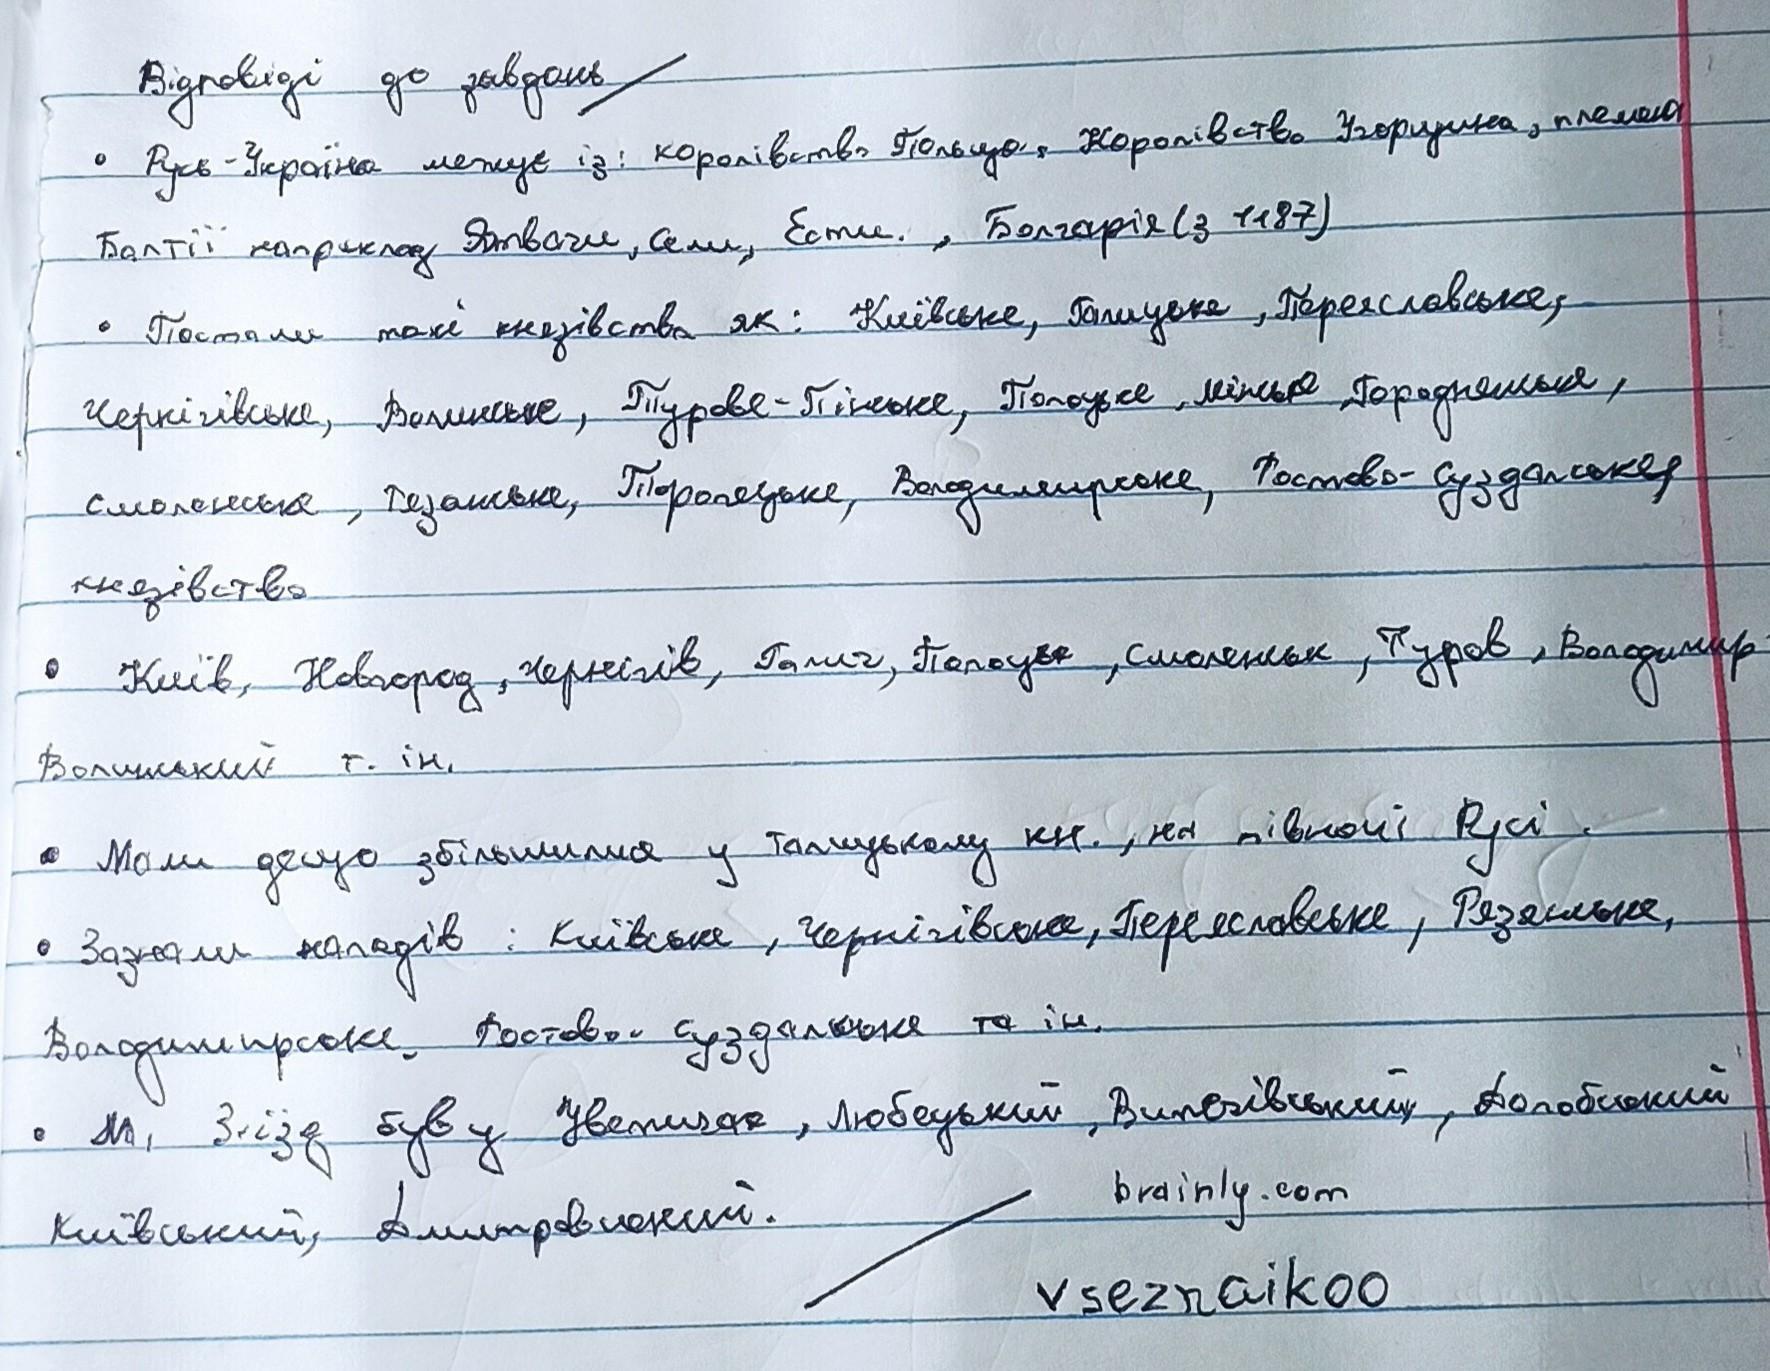 Відповіді до завдань
• Русь-Україна межує із: королівство Польща, Королівство Угорщина, племена
Балтії наприклад Ятваги, Сели, Ести. , Болгарія (з 1187)
• Постали такі князівства як: Київське, Галицьке, Переяславське,
Чернігівське, Волинське, Турово-Пінське, Полоцьке, Мінське, Городненське,
Смоленське, Рязанське, Торопецьке, Володимирське, Ростово-Суздальське,
князівства
• Київ, Новгород, Чернігів, Галич, Полоцьк, Смоленськ, Туров, Володимир
Волинський т. ін.
• Мали дещо збільшилися у Галицькому кн., на півночі Русі.
• Зазнали нападів: Київське, Чернігівське, Переяславське, Рязанське,
Володимирське, Ростово-Суздальське та ін.
• З'їзд був у Уветичах, Любецький, Витечівський, Долобський
Київський, Дмитровський.
brainly.com
vseznaikoo